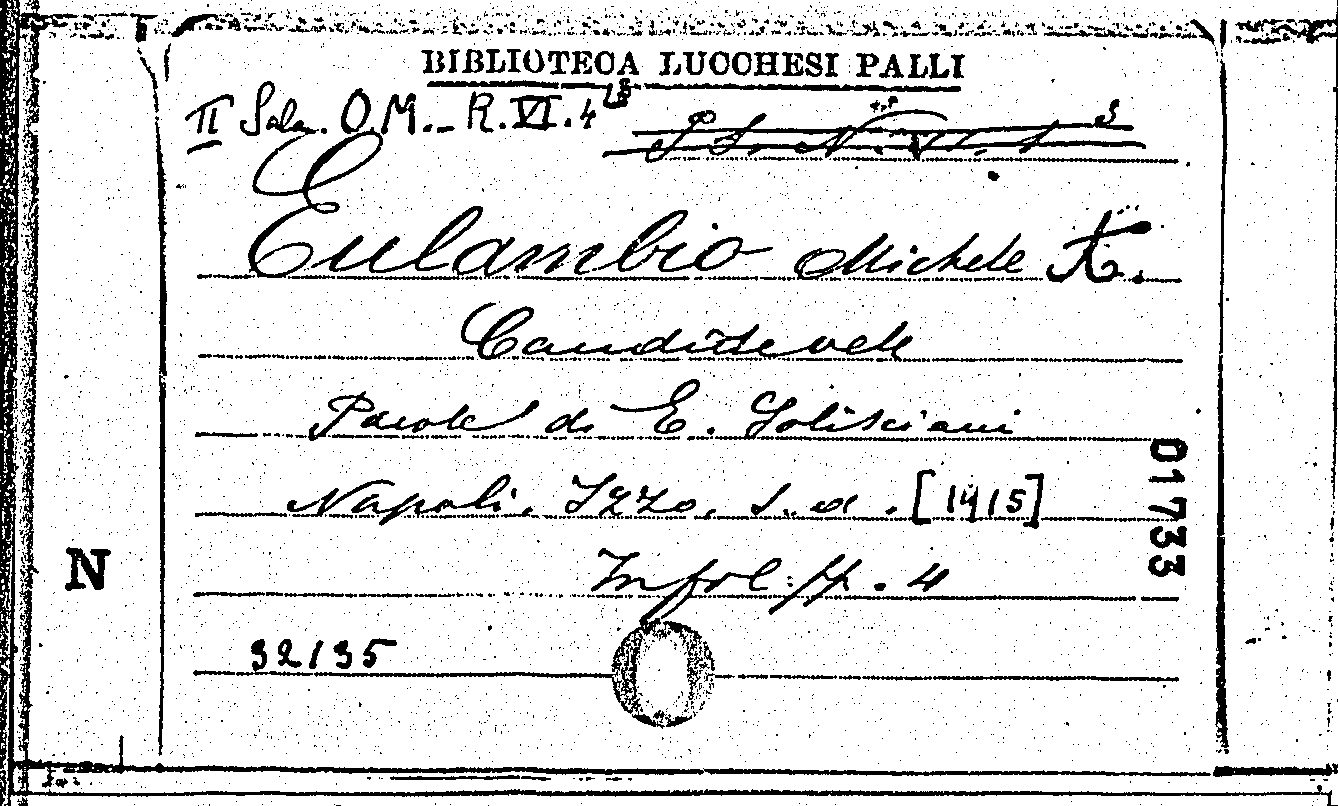 BIBLIOTECA LUCCHESI PALLI
II Sala. O.M. R.VI.4
Eulambio Michele
Candide vele
Parole di E. Golisciani
Napoli. Izzo. s.d. [1915]
In fol. pp. 4
N
32135
01733